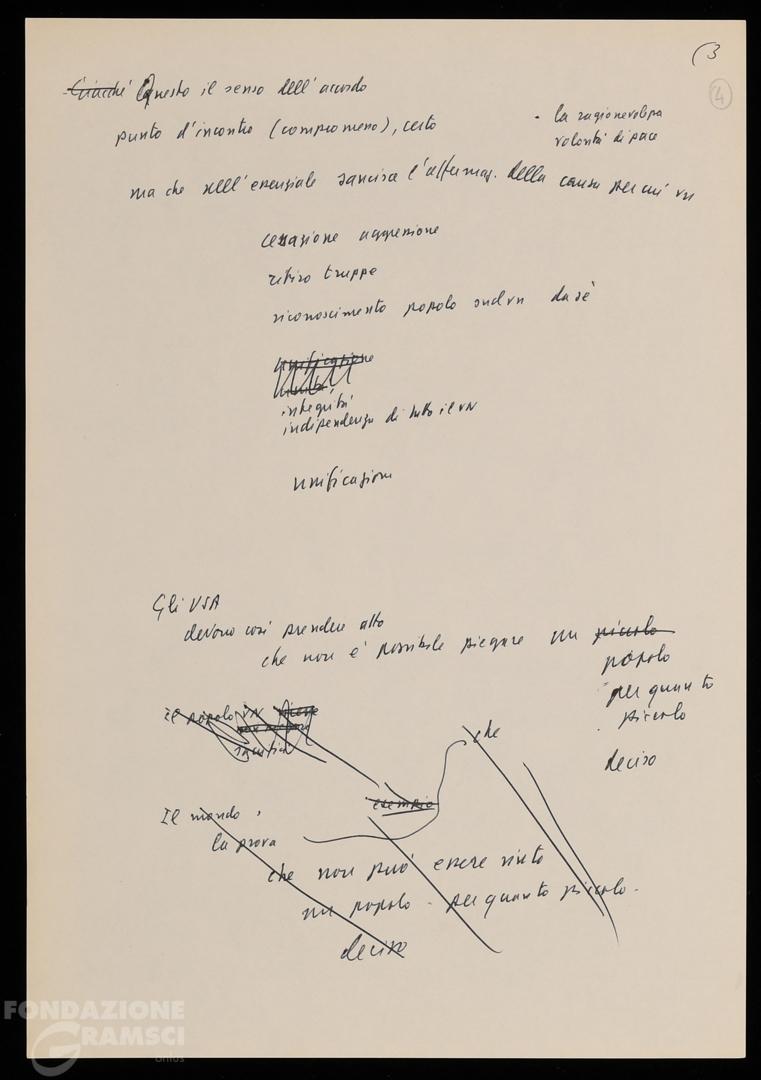 (3
4
Giacché Questo il senso dell'accordo
punto d'incontro (compromesso), certo
- la ragionevolezza
volontà di pace
ma che nell'essenziale sancisce l'affermaz. della causa per cui VN
cessazione aggressione
ritiro truppe
riconoscimento popolo sud VN da sé
unificazione
integrità
indipendenza di tutto il VN
unificazione
Gli USA
devono così prendere atto
che non è possibile piegare un piccolo
popolo
per quanto
piccolo
deciso
Il popolo VN
che
esempio
Il mondo,
la prova
che non può essere vinto
un popolo - per quanto piccolo -
deciso
FONDAZIONE
GRAMSCI
onlus